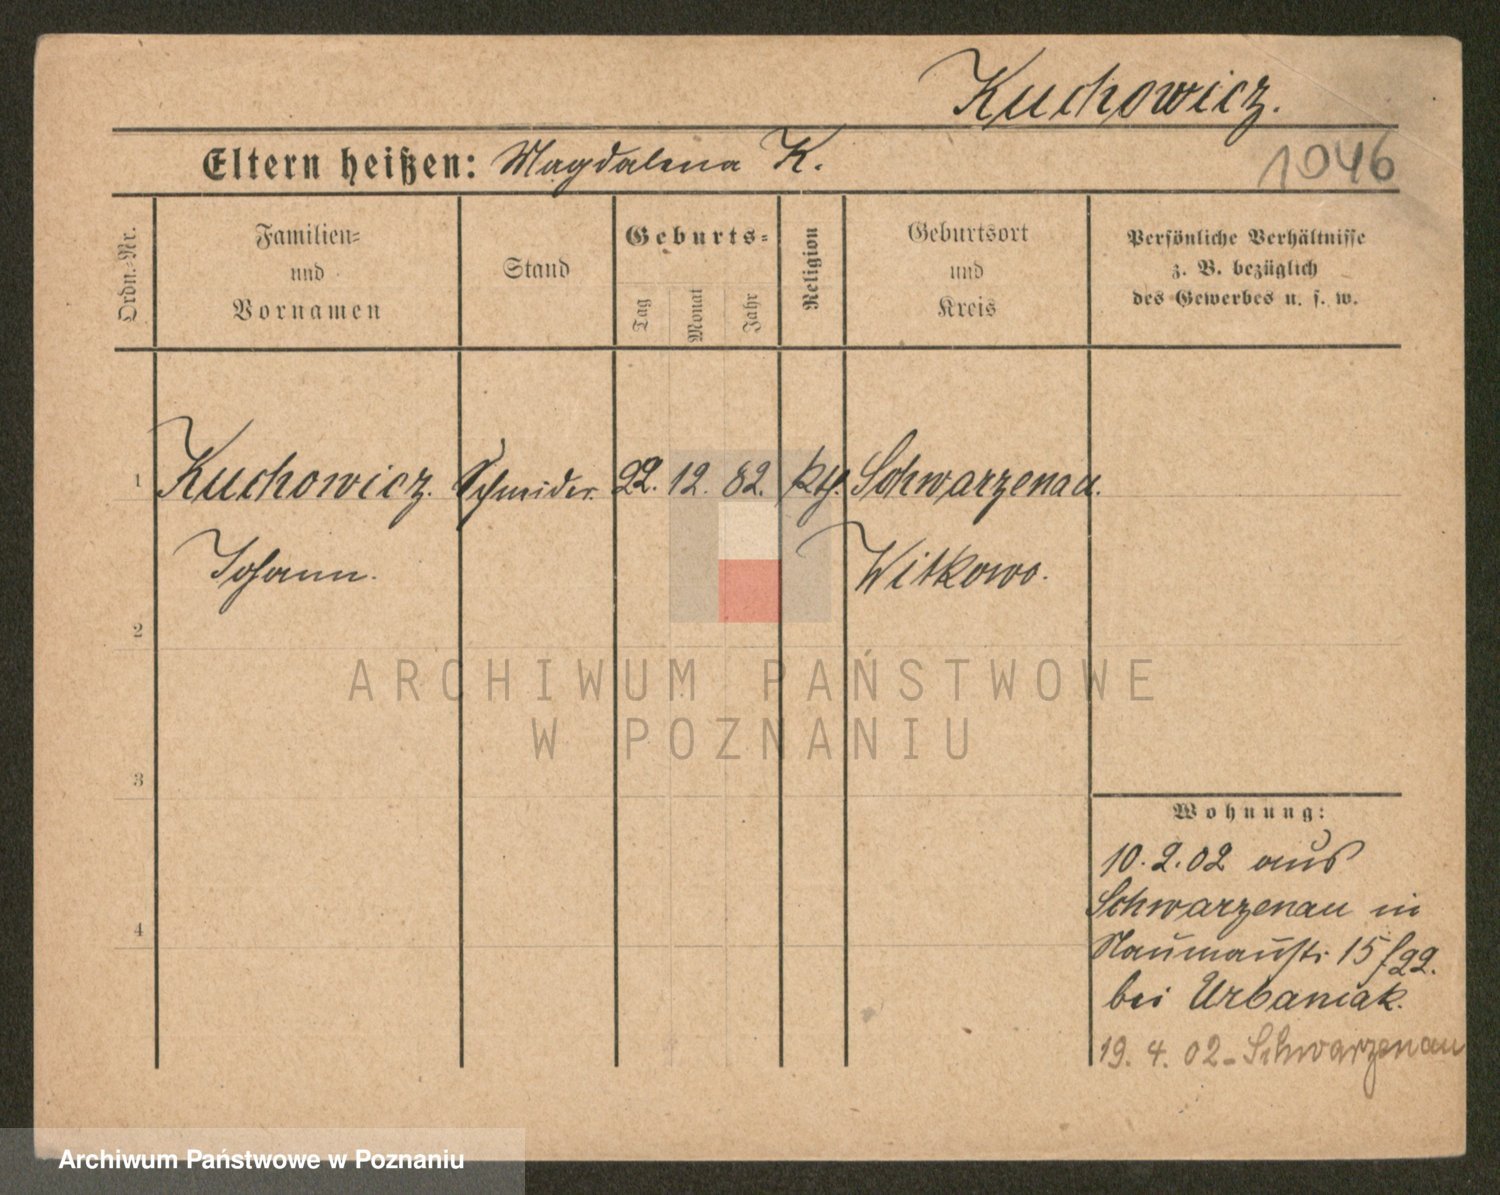 Kuchowicz.
Eltern heißen: Magdalena K.
1046
Ordn.-Nr.
Familien-
und
Vornamen
Stand
Geburts-
Tag
Monat
Jahr
Religion
Geburtsort
und
Kreis
Persönliche Verhältnisse
z. B. bezüglich
des Gewerbes u. s. w.
1 Kuchowicz. Schneider. 22. 12. 82. kth. Schwarzenau.
Johann. Witkowo.
2
ARCHIWUM PAŃSTWOWE
W POZNANIU
3
Wohnung:
10. 2. 02 aus
Schwarzenau in
4
Naumannstr. 15
bei Urbaniak.
19. 4. 02 - Schwarzenau
Archiwum Państwowe w Poznaniu